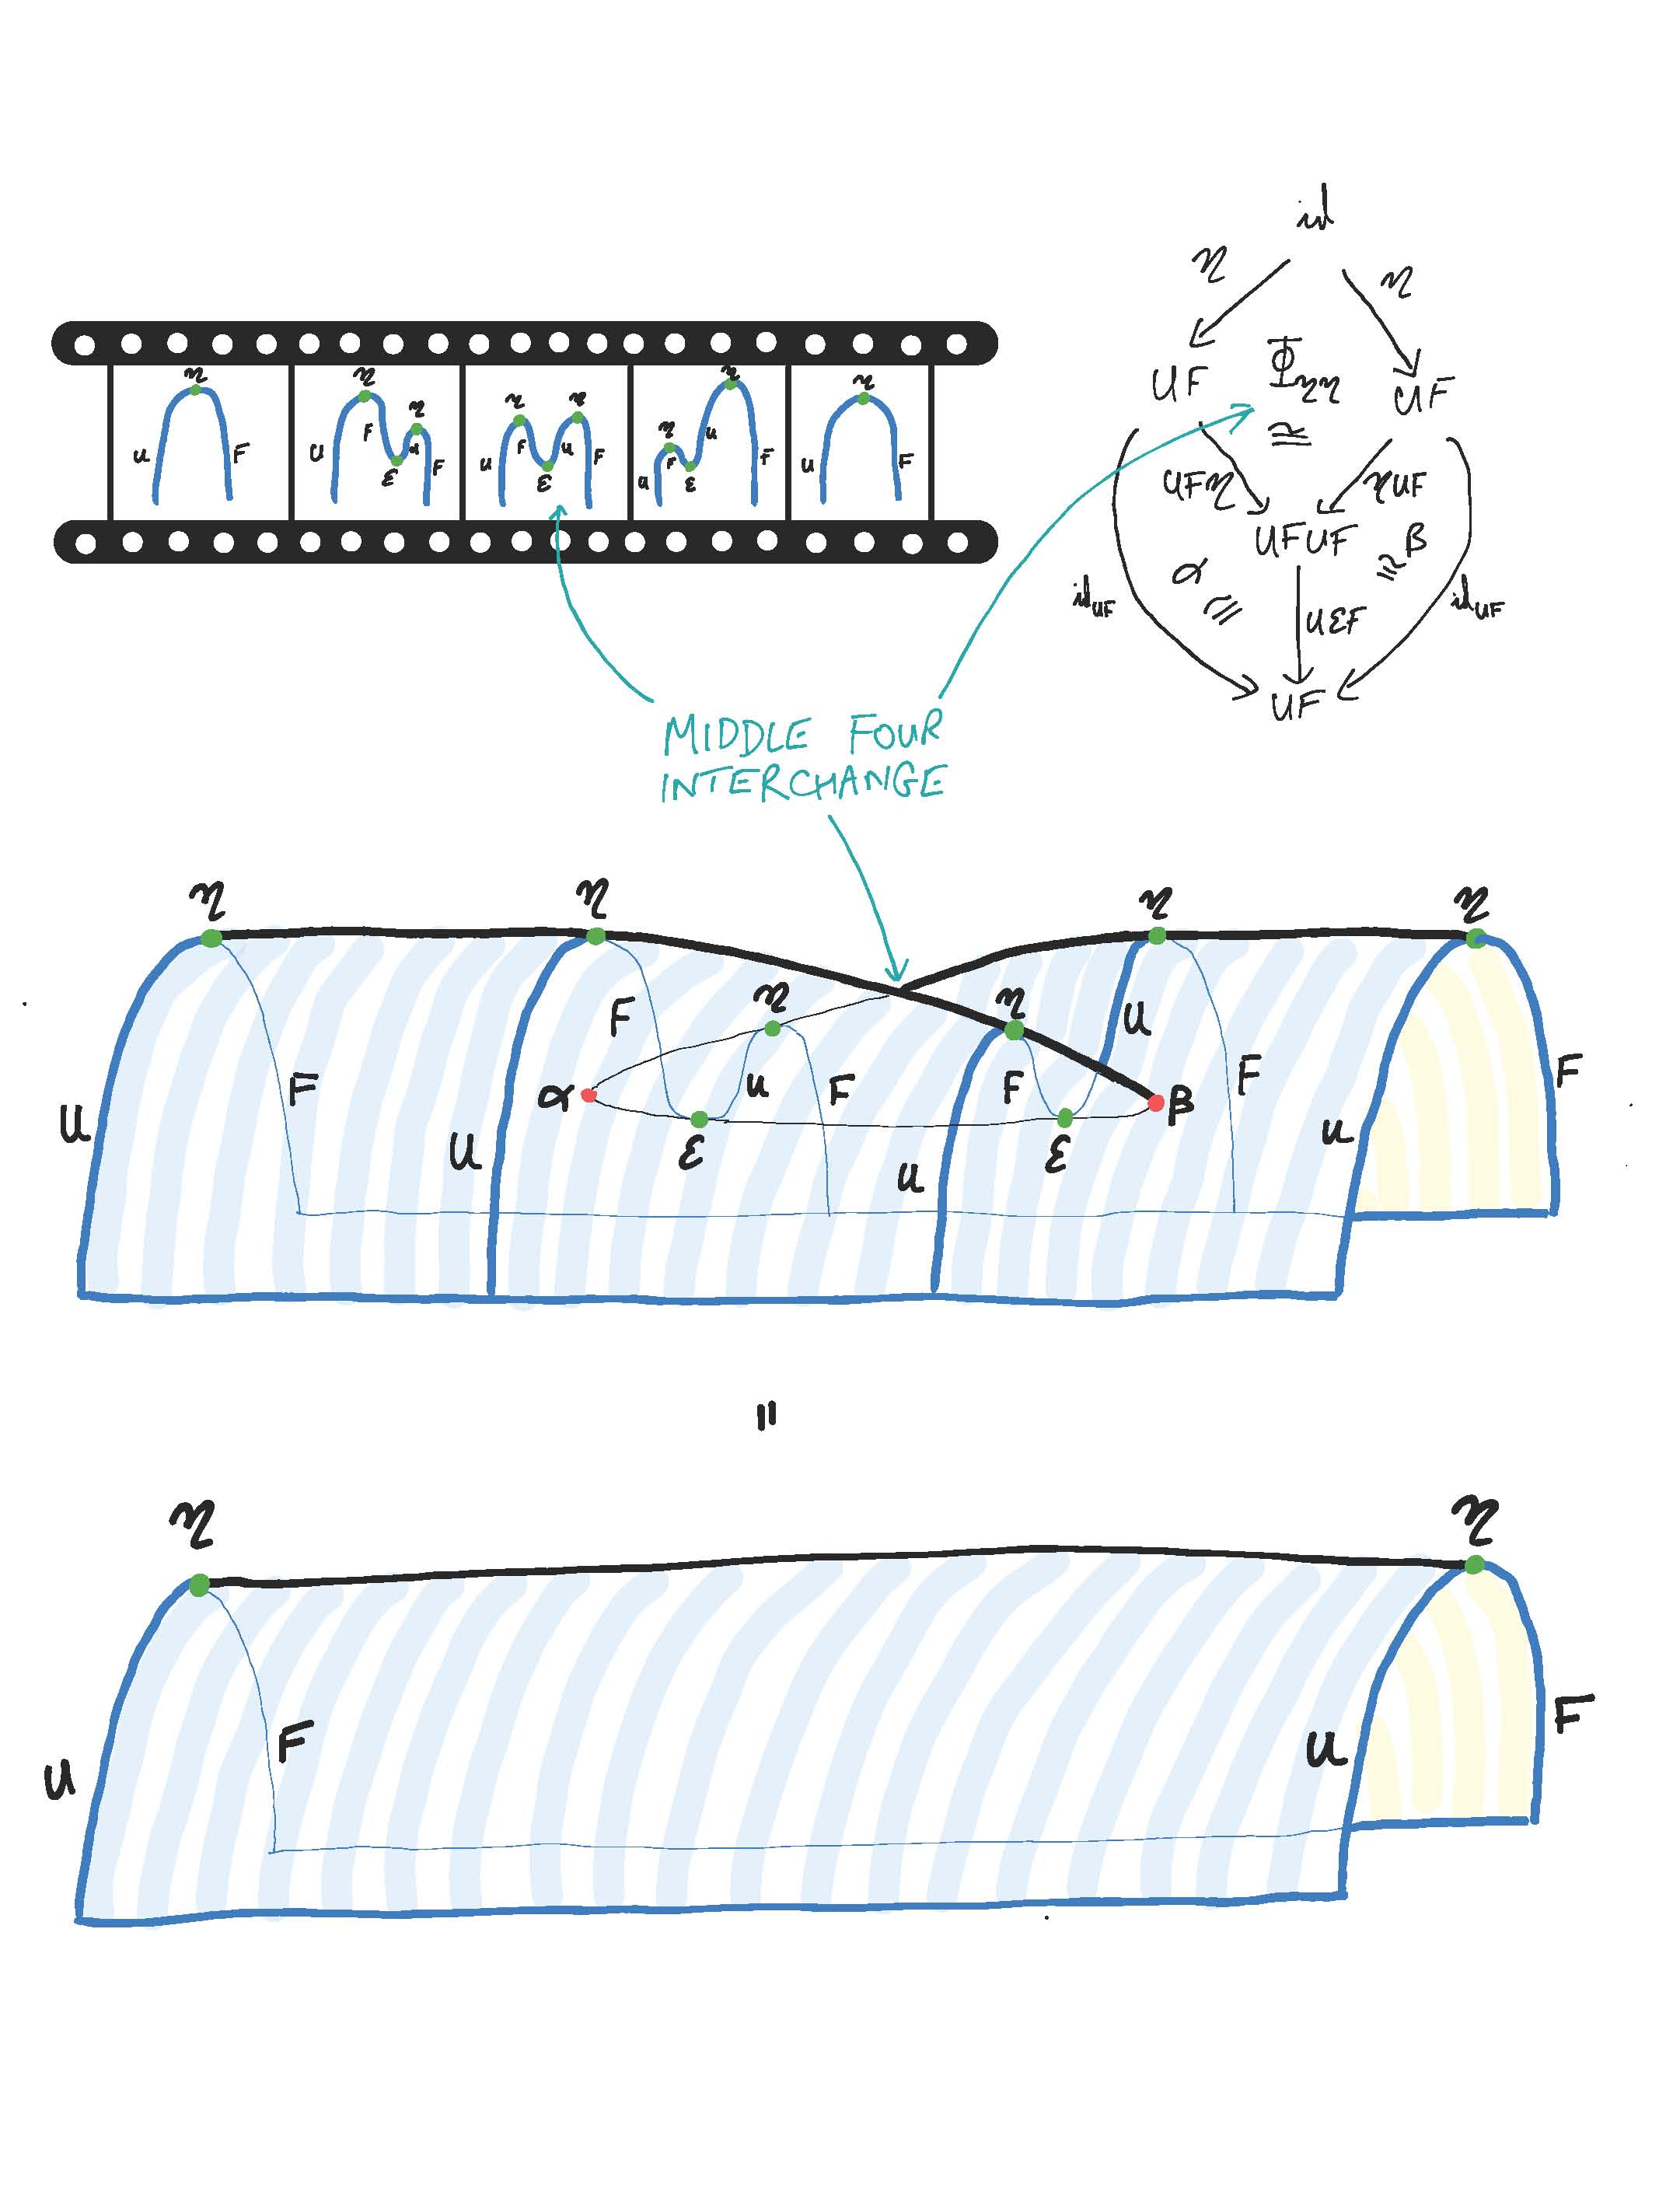 η
U F
η
η
U F u F
ε
η η
u F u F
ε
η
η
u
F
u F
ε
η
u F
id
η η
UF Φηη UF
≅
UFη ηUF
UFUF
α ≅ ≅ β
id_UF UεF id_UF
UF
MIDDLE FOUR
INTERCHANGE
η η η η
η η
F u F
F U F
α u F F β
U U
ε ε
u u
=
η η
U F u F